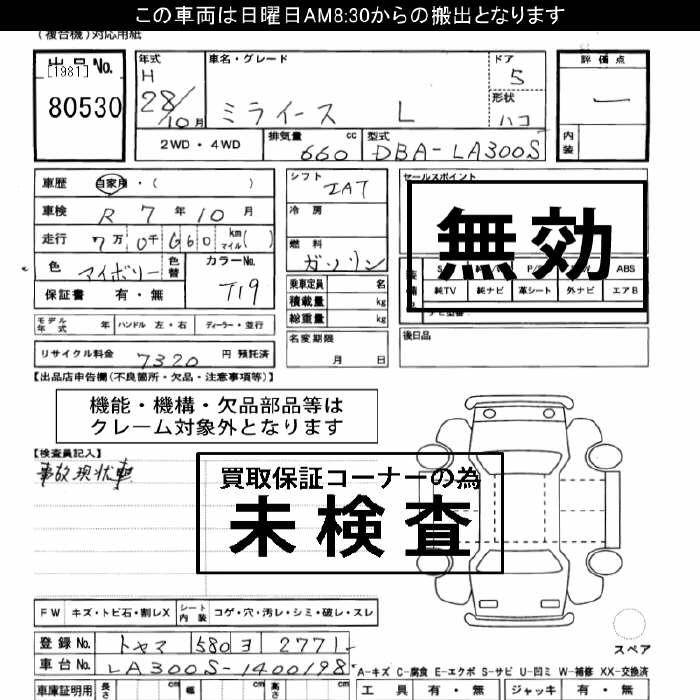 この車両は日曜日AM8:30からの搬出となります
(複合機)対応用紙
出品No. [1981] 80530
年式 H 28/10月
車名・グレード ミライース L
ドア 5
形状 ハコ
評価点 ー
内装
2WD・4WD
排気量 660 cc
型式 DBA-LA300S
車歴 自家用・( )
車検 R 7年 10月
走行 7万 0千 660 km マイル( )
色 アイボリー 色替
カラーNo. T19
保証書 有・無
モデル年式 年 ハンドル 左・右 ディーラー・並行
リサイクル料金 7320 円 預託済
シフト IAT
冷房
燃料 ガソリン
乗車定員 名
積載量 kg
総重量 kg
名変期限 月 日
セールスポイント
無効
ABS
純TV 純ナビ 革シート 外ナビ エアB
後日品
【出品店申告欄(不良箇所・欠品・注意事項等)】
機能・機構・欠品部品等は
クレーム対象外となります
【検査員記入】
事故現状車
買取保証コーナーの為
未検査
FW キズ・トビ石・割レX シート内装 コゲ・穴・汚レ・シミ・破レ・スレ
スペア
登録No. トヤマ 580 ヨ 2771
車台No. LA300S-1400198
A-キズ C-腐食 E-エクボ S-サビ U-凹ミ W-補修 XX-交換済
車庫証明用 長さ cm 幅 cm 高さ cm
工具 有・無 ジャッキ 有・無